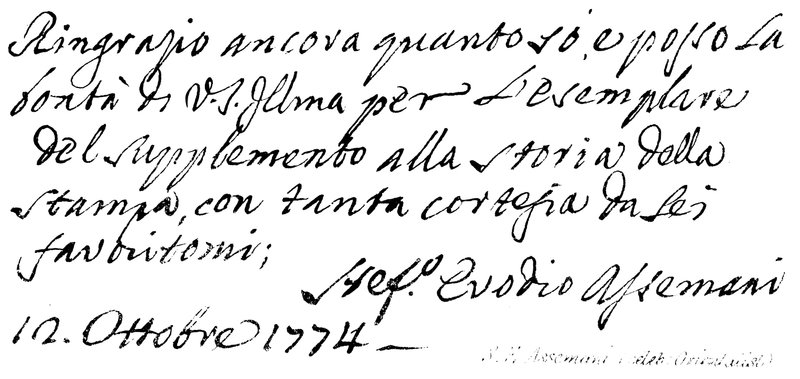 Ringrazio ancora quanto so, e posso La
bontà di V.S. Illma per L'esemplare
del supplemento alla storia della
stampa, con tanta cortesia da Lei
favoritomi;
Stef.º Evodio Assemani
12. Ottobre 1774 —
S. E. Assemani (celeb. Orientalist)